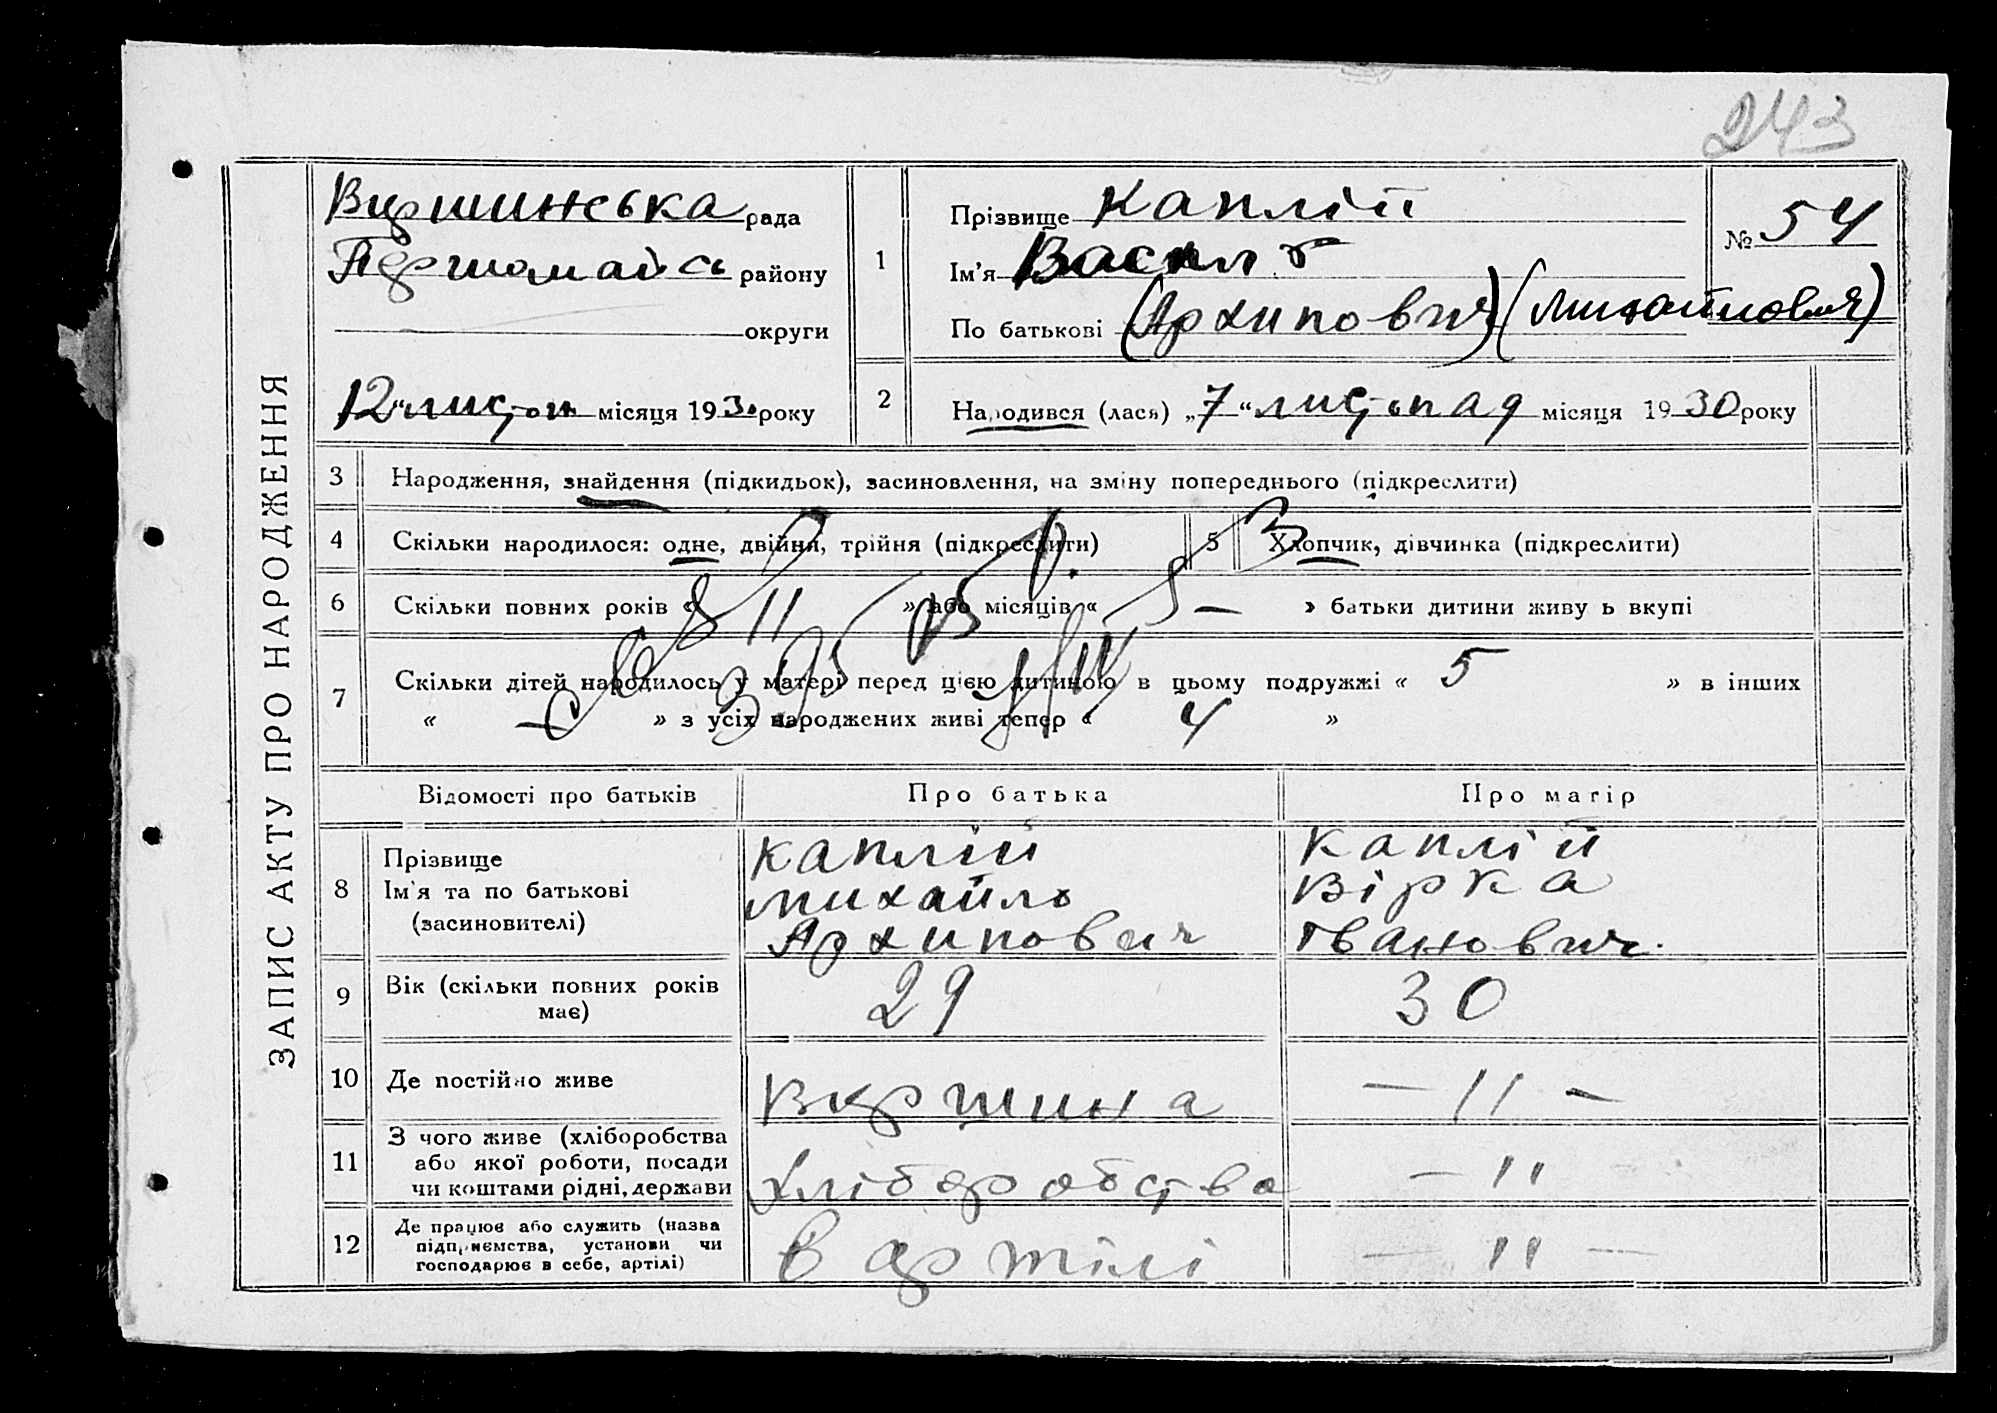 243
ЗАПИС АКТУ ПРО НАРОДЖЕННЯ
Виршинська рада
Першомайсь району
округи
12 „листоп місяця 1930 року
1
Прізвище Каплій
Ім'я Василь
По батькові (Архипович) (Михайлович)
№ 54
2
Народився (лася) „7“ листопад місяця 1930 року
3 Народження, знайдення (підкидьок), засиновлення, на зміну попереднього (підкреслити)
4 Скільки народилося: одне, двійня, трійня (підкреслити)
5 Хлопчик, дівчинка (підкреслити)
6 Скільки повних років « 11 » або місяців « — » батьки дитини живу ь вкупі
7 Скільки дітей народилось у матері перед цією дитиною в цьому подружжі « 5 » в інших
« — » з усіх народжених живі тепер « 4 »
Відомості про батьків Про батька Про матір
8 Прізвище
Ім'я та по батькові
(засиновителі)
Каплій
Михайло
Архипович
Каплій
Вірка
Іванович.
9 Вік (скільки повних років
має)
29
30
10 Де постійно живе
Виршина
— 11 —
11 З чого живе (хліборобства
або якої роботи, посади
чи коштами рідні, держави
Хліборобства
— 11
12 Де працює або служить (назва
підприємства, установи чи
господарює в себе, артілі)
в артілі
— 11 —